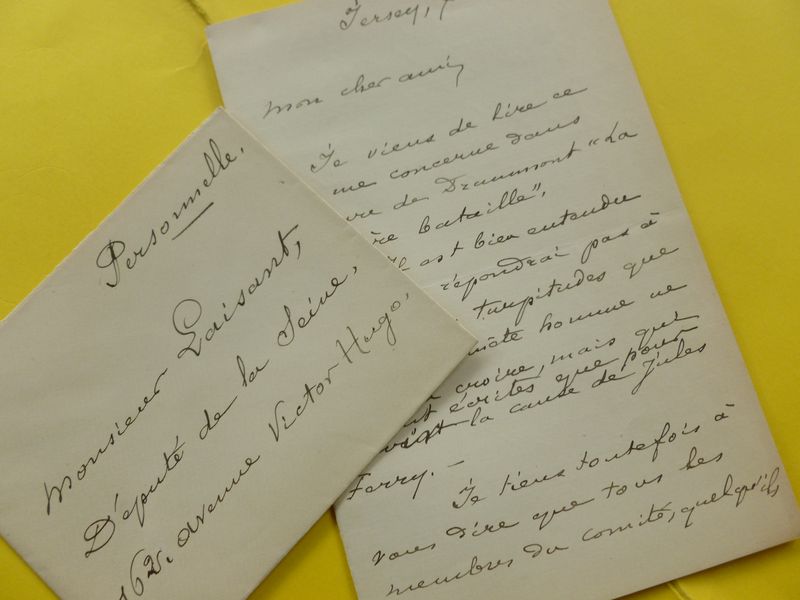 Personnelle.
Monsieur Laisant,
Député de la Seine,
162. avenue Victor Hugo,
Jersey,
Mon cher ami,
Je viens de lire ce
me concerne dans
vre de Drumont "La
ère bataille",
Il est bien entendu
répondrai pas à
turpitudes que
nnête homme ne
croire, mais qui
nt écrites que pour
la cause de Jules
Ferry. —
Je tiens toutefois à
vous dire que tous les
membres du comité, quelqu'ils